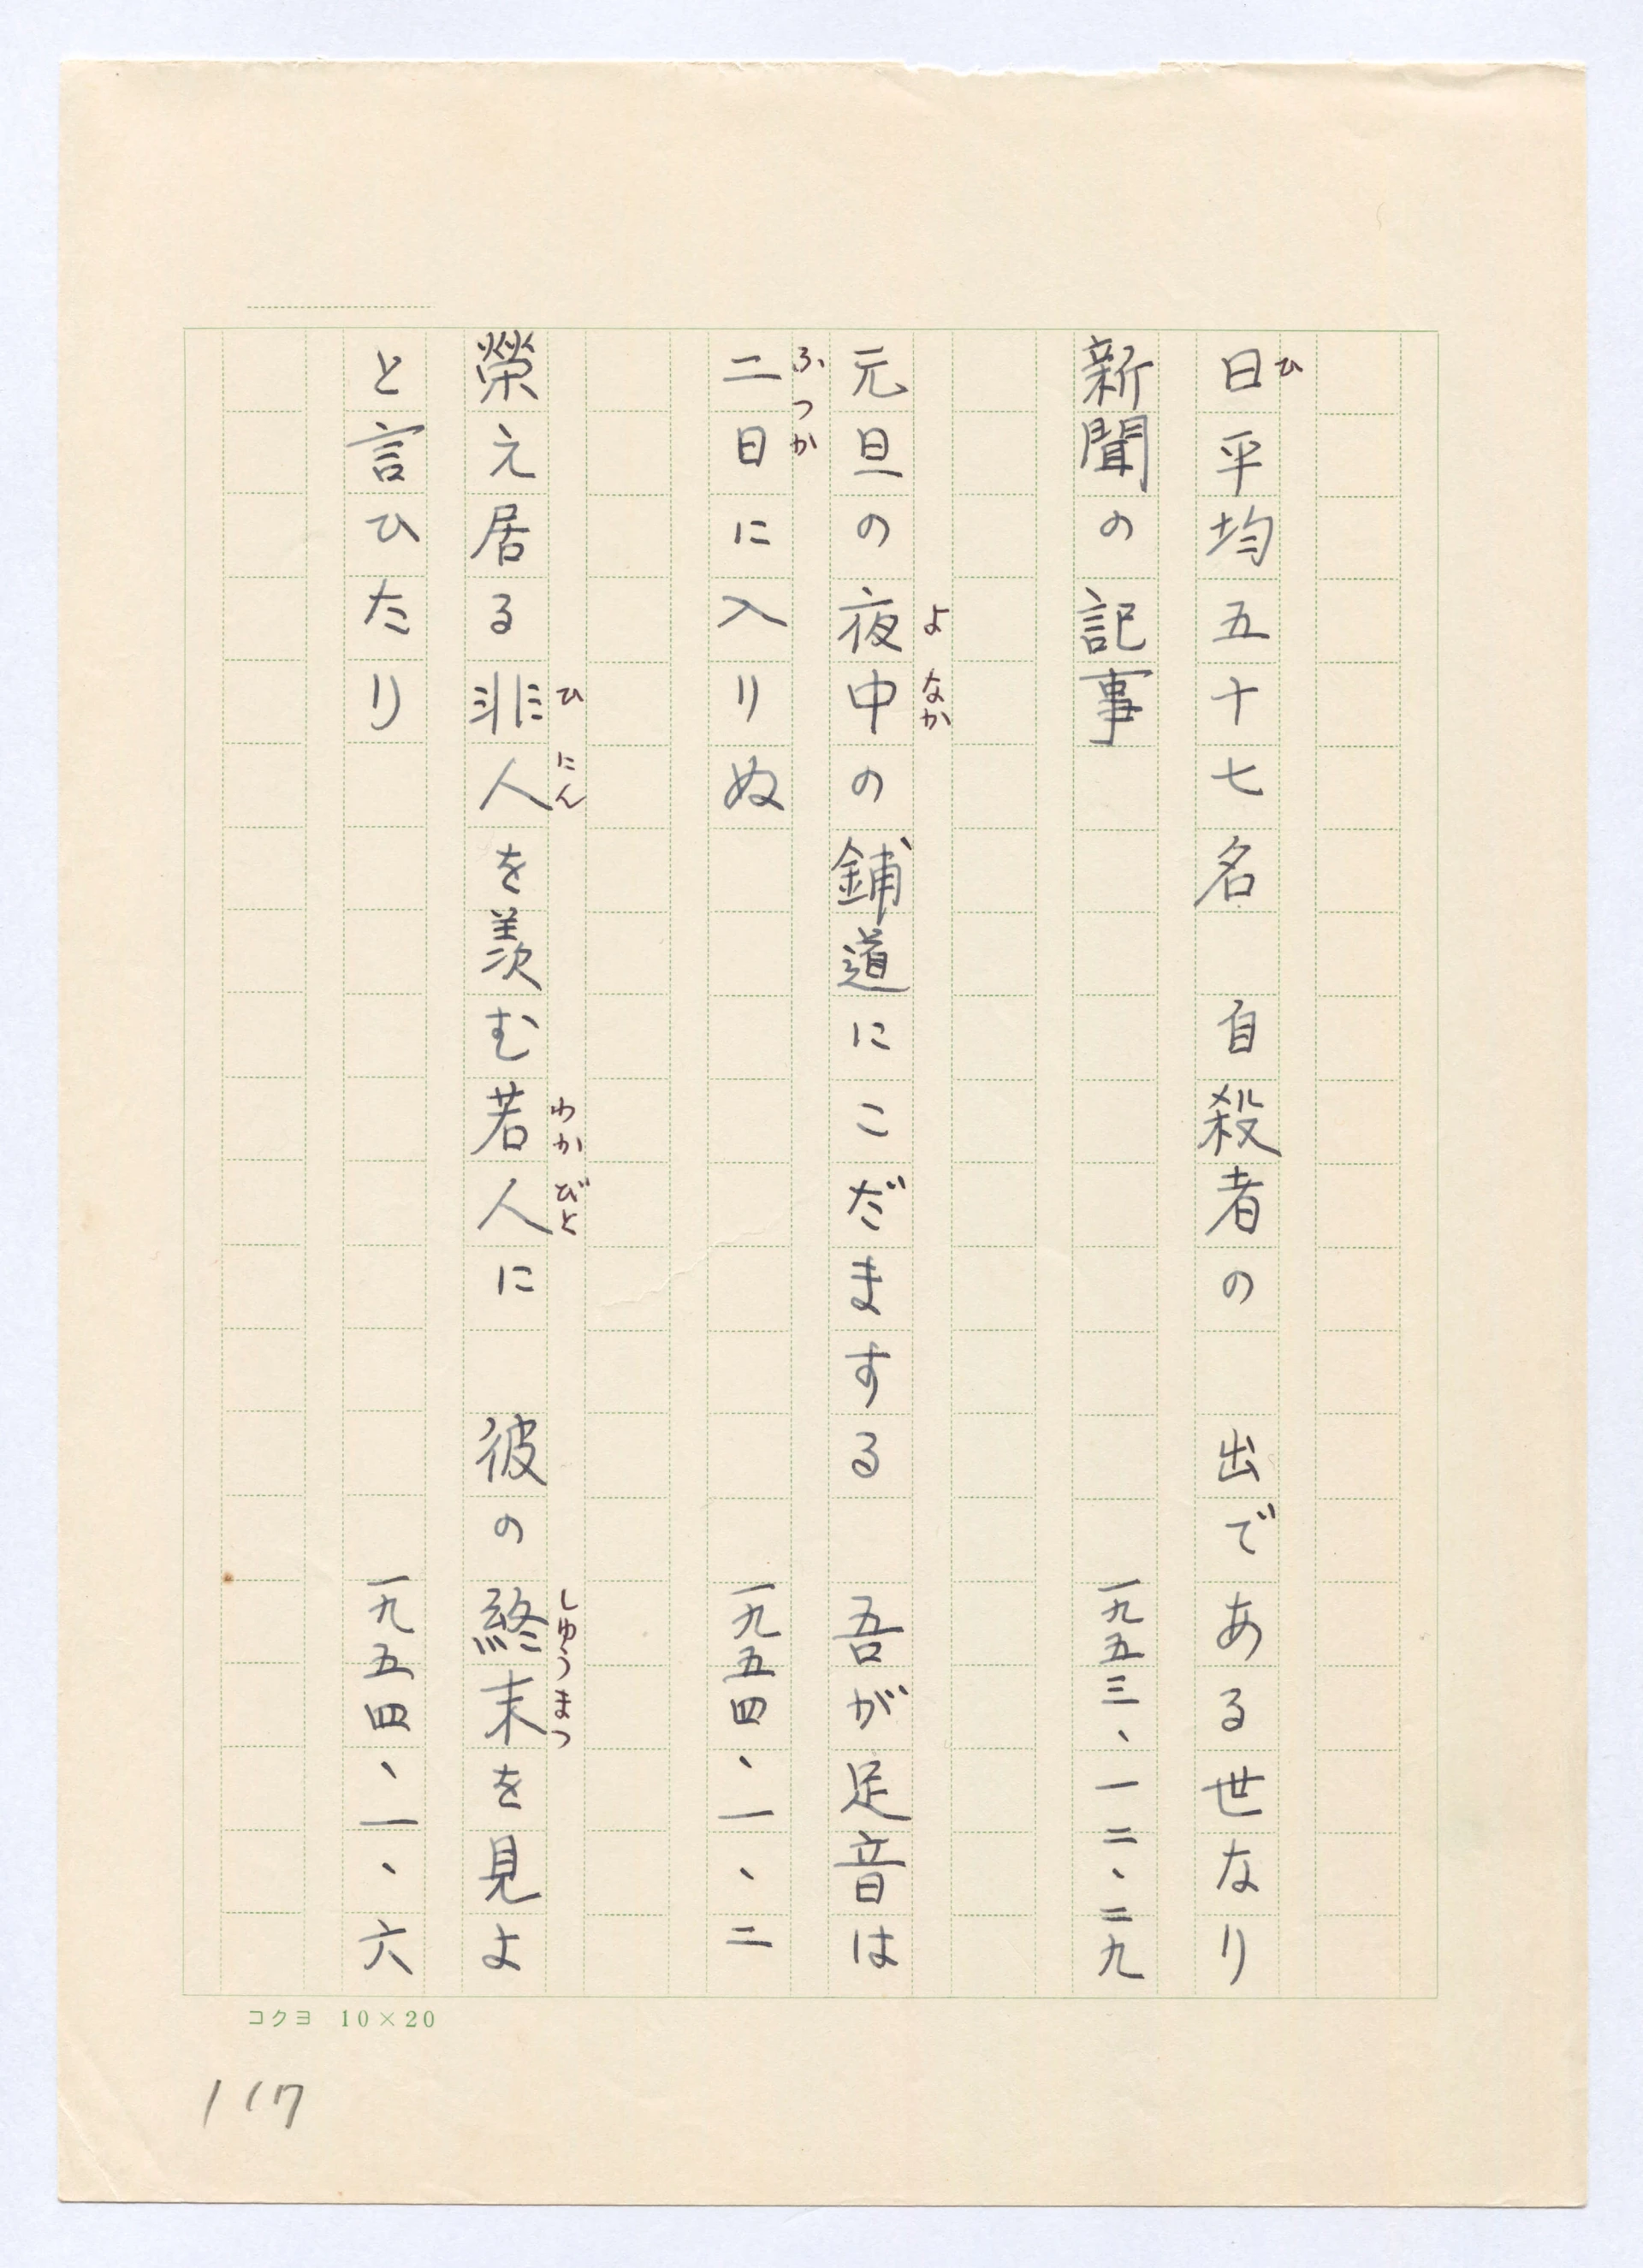 日平均五十七名　自殺者の　出である世なり
ひ
新聞の記事　一九五三、一二、二九
元旦の夜中の鋪道にこだまする　吾が足音は
よなか
二日に入りぬ　一九五四、一、二
ふつか
榮え居る非人を羨む若人に　彼の終末を見よ
ひにん　わかびと　しゆうまつ
と言ひたり　一九五四、一、六
コクヨ 10×20
117